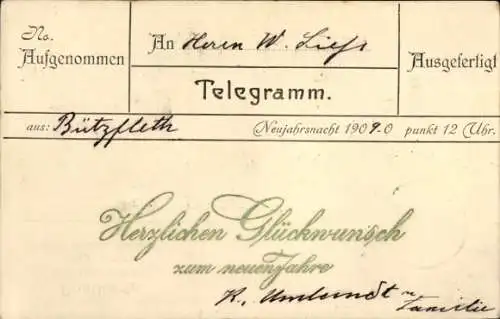 No.
Aufgenommen
An Herrn W.
Telegramm.
Ausgefertigt
aus: Bützfleth
Neujahrsnacht 1909.0 punkt 12 Uhr.
Herzlichen Glückwunsch
zum neuen Jahre
K. u
Familie